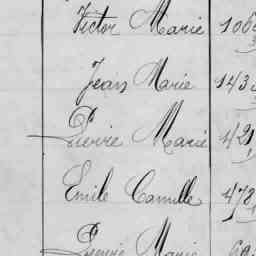 Victor Marie 106
Jean Marie 143
Pierre Marie 421
Emile Camille 478
Pierre Marie